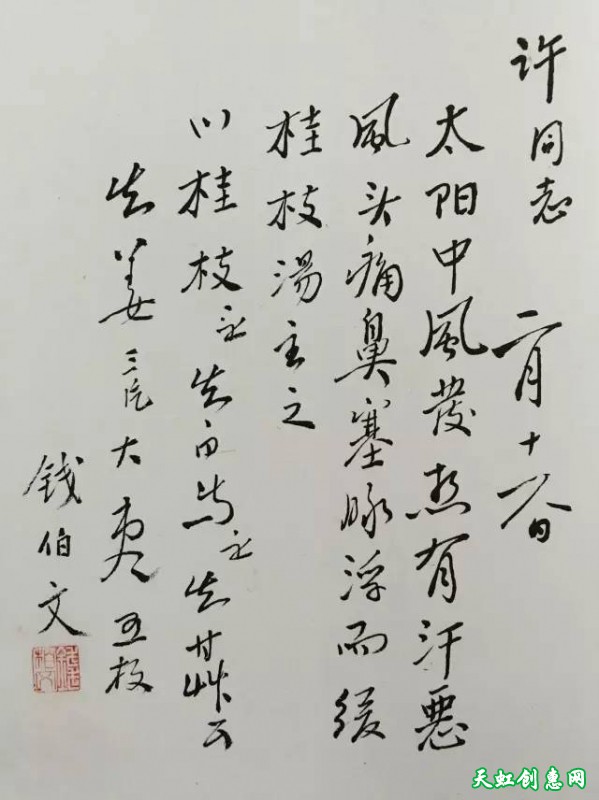 许同志 二月十日
太阳中風發热有汗惡
風头痛鼻塞脉浮而缓
桂枝湯主之
川桂枝 白芍 甘草
生姜三片大枣五枚
钱伯文
天虹创惠网